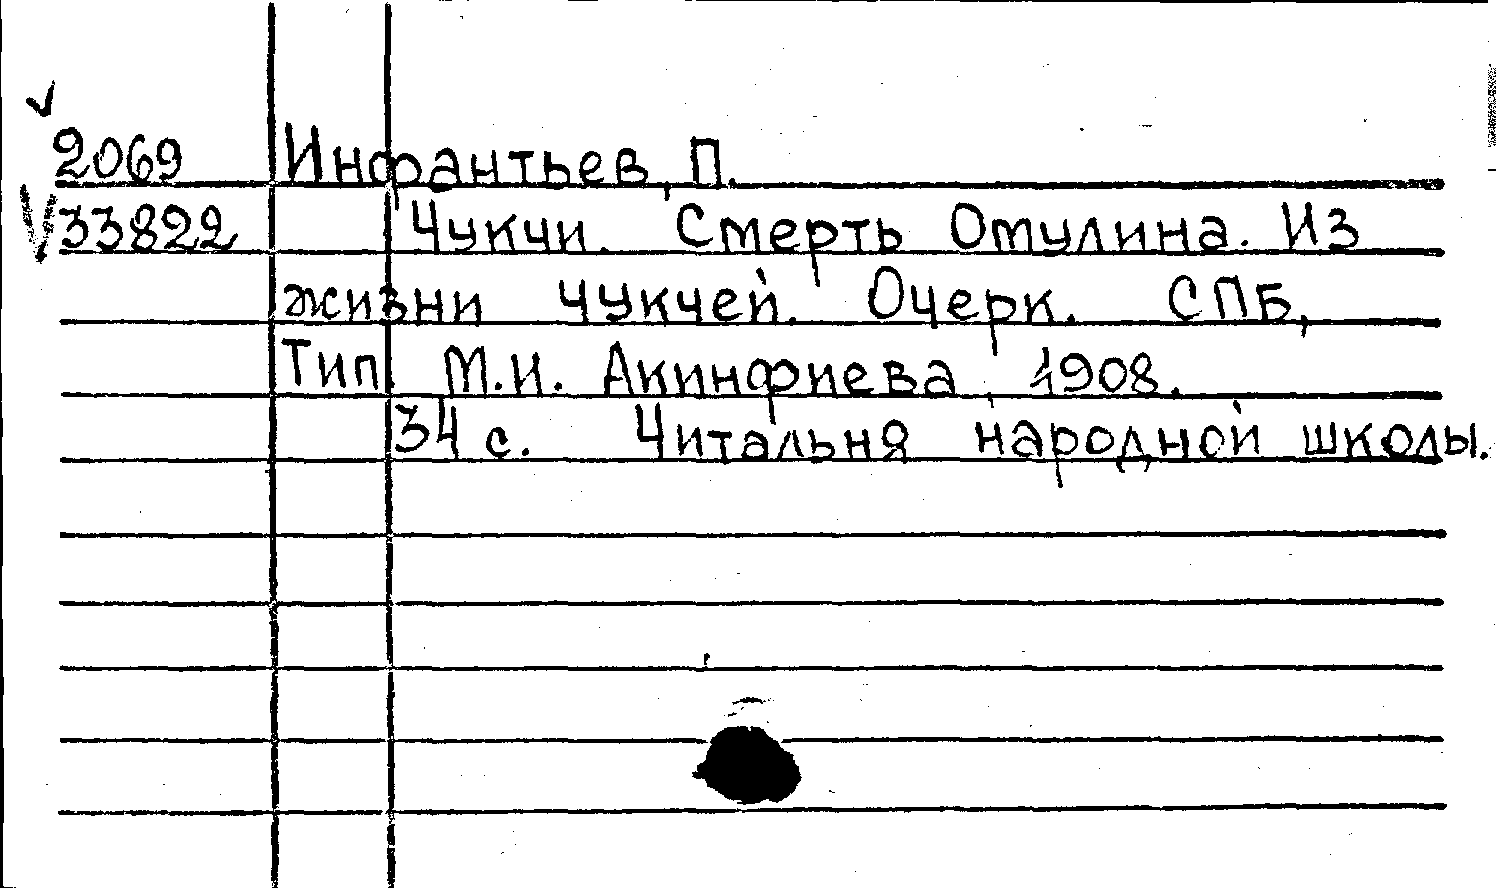 2069 Инфантьев, П.
33822 Чукчи. Смерть Омулина. Из
жизни чукчей. Очерк. СПБ,
Тип. М.И. Акинфиева, 1908.
34 с. Читальня народной школы.